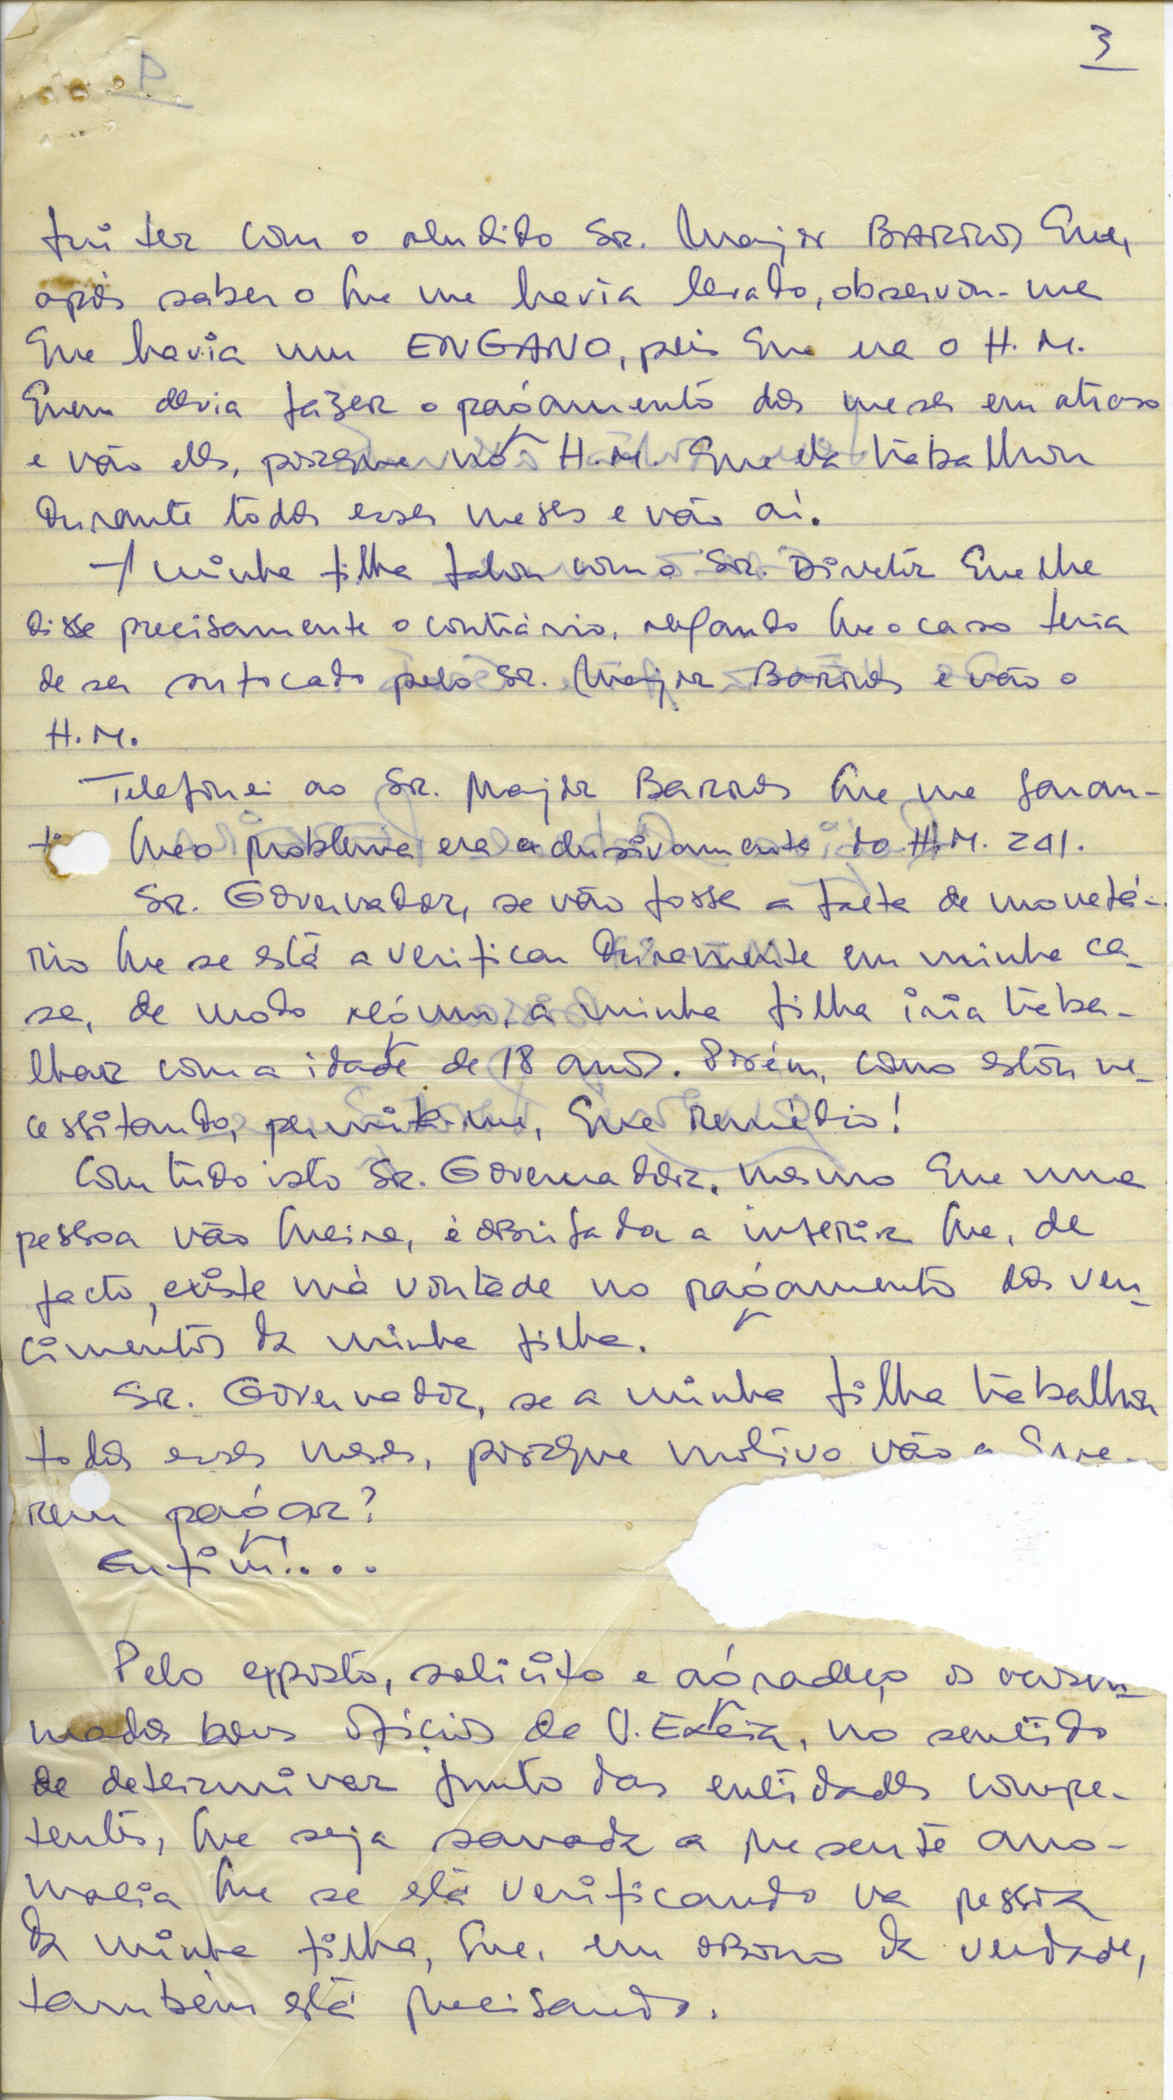 3
fui ter com o aludido Sr. Major BARROS que,
após saber o que me havia levado, observou-me
que havia um ENGANO, pois que era o H. M.
quem devia fazer o pagamento dos meses em atraso
e não eles, porque no H. M. que ela trabalhou
durante todos esses meses e não aí.
A minha filha falou com o Sr. Director que lhe
disse precisamente o contrário, alegando que o caso teria
de ser focado pelo Sr. Major Barros e não o
H. M.
Telefonei ao Sr. Major Barros que me garan-
tiu que o problema era exclusivamente do H. M. 241.
Sr. Governador, se não fosse a falta de monetá-
rio que se está a verificar duramente em minha ca-
sa, de modo algum, a minha filha iria traba-
lhar com a idade de 18 anos. Porém, como estou ne-
cessitando, permita-me, que remédio!
Com tudo isto Sr. Governador, mesmo que uma
pessoa não queira, é obrigada a inferir que, de
facto, existe má vontade no pagamento dos ven-
cimentos da minha filha.
Sr. Governador, se a minha filha trabalhou
todos esses meses, porque motivo não a que-
rem pagar?
Enfim!....
Pelo exposto, solicito e agradeço os
bons ofícios de V. Excia, no sentido
de determinar junto das entidades compe-
tentes, que seja sanada a presente ano-
malia que se está verificando na pessoa
da minha filha, que, em abono da verdade,
também está precisando.